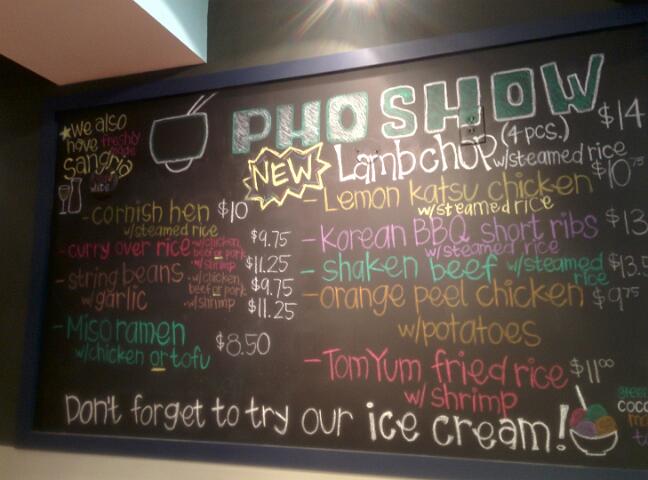 PHO SHOW
★we also
have freshly
made
sangria
NEW
Lamb chop (4 pcs.) $14
w/steamed rice
-Lemon katsu chicken $10.75
w/steamed rice
-Korean BBQ short ribs $13
w/steamed rice
-shaken beef w/steamed $13.5
rice
-orange peel chicken $9.75
w/potatoes
-Tom Yum fried rice $11.00
w/ shrimp
-cornish hen $10
w/steamed rice
-curry over rice -w/chicken, $9.75
beef or pork
-w/shrimp $11.25
-string beans -w/chicken, $9.75
w/garlic beef or pork
-w/shrimp $11.25
-Miso ramen $8.50
w/chicken or tofu
Don't forget to try our ice cream!
coco